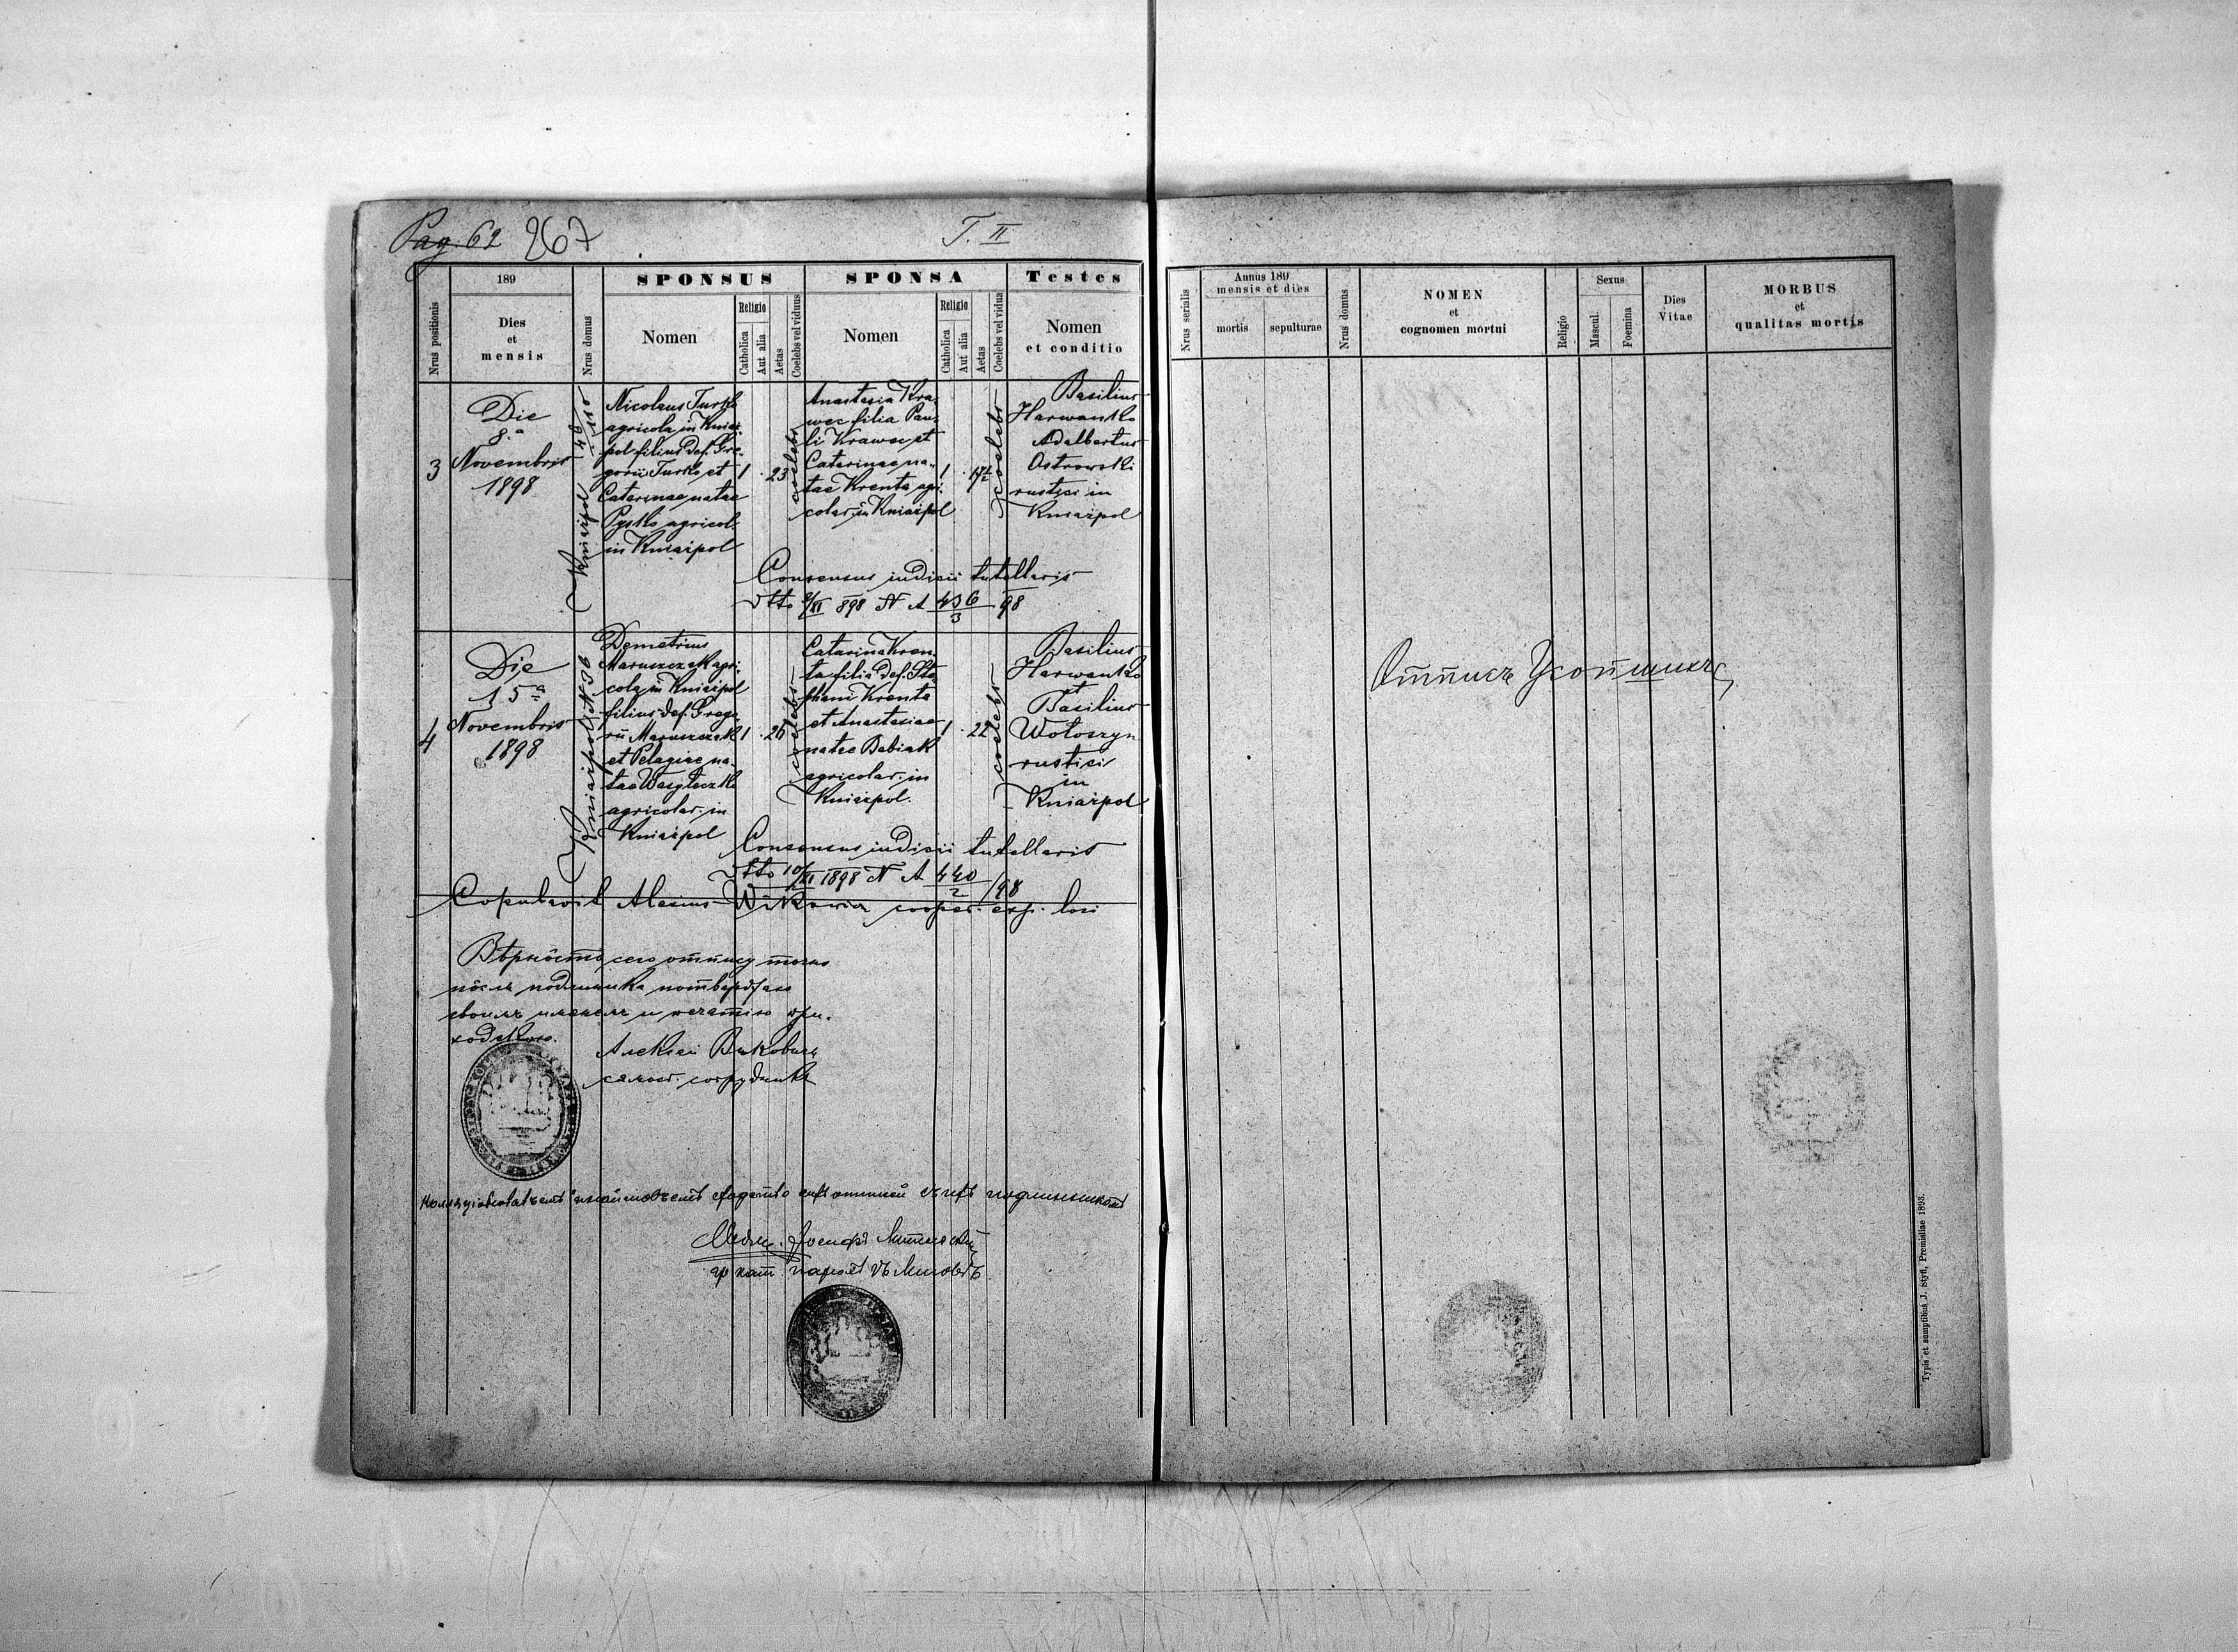 Pag. 62 267
T. II
Nrus positionis
189
Dies
et
mensis
Nrus domus
SPONSUS
Nomen
Religio
Catholica
Aut alia
Aetas
Coelebs vel viduus
SPONSA
Nomen
Religio
Catholica
Aut alia
Aetas
Coelebs vel vidua
Testes
Nomen
et conditio
3
Die
8.ª
Novembris
1898
Kniażpol
Nicolaus Turko
agricola in Kniaż-
pol filius def. Gre-
gorii Turko et
Catarinae natae
Pysko agricol.
in Kniażpol
1 . 23
coelebs
Anastasia Kra-
wec filia Pau-
li Krawec et
Catarinae na-
tae Krenta agri-
colar. in Kniażpol
1 . 17½
coelebs
Basilius
Harwanko
Adalbertus
Ostrowski
rustici in
Kniażpol
Consensus iudicii tutellaris
dtto XI 898 N A 436/3 98
4
Die
15ª
Novembris
1898
Kniażpol
Demetrius
Maruszczak agri-
cola in Kniażpol
filius def. Grego-
rii Maruszczak
et Pelagiae na-
tae Wasyleczko
agricolar. in
Kniażpol
1 . 26
coelebs
Catarina Kren-
ta filia def. Ste-
phani Krenta
et Anastasiae
natae Babiak
agricolar. in
Kniażpol.
1 . 22
coelebs
Basilius
Harwanko
Basilius
Wołoszyn
rustici
in
Kniażpol
Consensus iudicii tutellaris
dtto 10/XI 1898 N A 440/2 /98
Copulavit Alexius Wikowicz cooper. exp. loci
Вѣрнôсть сего отпису точно
пôсля подлинника потверджаю
своимъ именемъ и печатію при-
ходскою.
Алексій Виковичъ
самост. сотрудникъ
подлинникомъ
Іосифъ
гр кат. парохъ въ
Annus 189
mensis et dies
Nrus serialis
mortis
sepulturae
Nrus domus
NOMEN
et
cognomen mortui
Religio
Sexus
Mascul.
Foemina
Dies
Vitae
MORBUS
et
qualitas mortis
Отписъ Усопшихъ
Typis et sumptibus J. Styfi, Premisliae 1893.